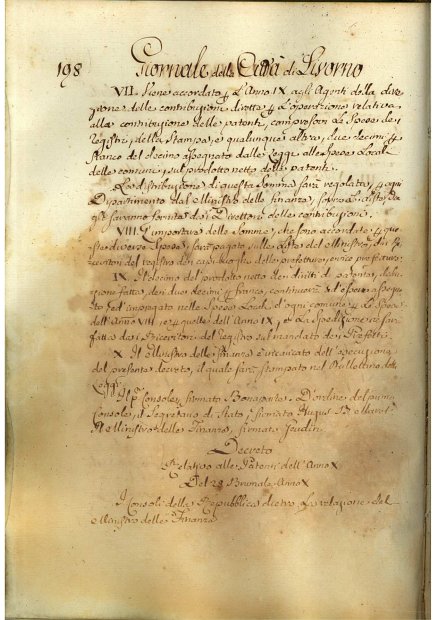 198 Giornale della Città di Livorno
VII. Viene accordato p. l'Anno IX agli Agenti della dire
zione delle contribuzioni dirette p. l'operazione relativa
alla contribuzione delle patenti, comprese le Spese dei
Registri, della Stampa, e qualunque altra, due decimi p.
franco del decimo assegnato dalle Leggi alle Spese Locali
delle comuni sul prodotto netto delle patenti.
La distribuzione di questa Somma sarà regolata, p. ogni
Dipartimento dal Ministro delle finanze, sopra Lo Stato, che
gli saranno forniti dai Direttori delle contribuzioni.
VIII. L'importare delle Somme, che sono accordate p. que
ste diverse Spese, sarà pagato sulle del Ministro dai Ri
cevitori del registro dei capi luoghi delle prefetture,
IX. Il decimo del prodotto netto dei diritti di patente, dedu
zione fatta, dei due decimi p. franco, continuerà ad essere
ed impiegato nelle Spese Locali d'ogni comune p. le Spese
dell'Anno VIII, e p. quelle dell'Anno IX, e La Spedizione ne sarà
fatta dai Ricevitori del registro sul mandato dei Prefetti.
X. Il Ministro delle finanze è incaricato dell'esecuzione
del presente decreto, il quale sarà stampato nel Bullettino delle
Leggi.
Il p. Console, firmato Bonaparte. D'ordine del primo
Console, il Segretario di Stato, firmato Hugues B. Maret
Il Ministro delle Finanze, firmato Gaudin.
Decreto
Relativo alle Patenti dell'Anno X
Del 28 Brumale Anno X
I Consoli della Repubblica dietro La relazione del
Ministro delle Finanze